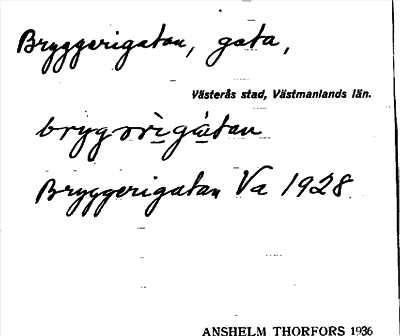 Bryggerigatan, gata,
Västerås stad, Västmanlands län.
bryg̀ərìgàtan
Bryggerigatan Va 1928
ANSHELM THORFORS 1936